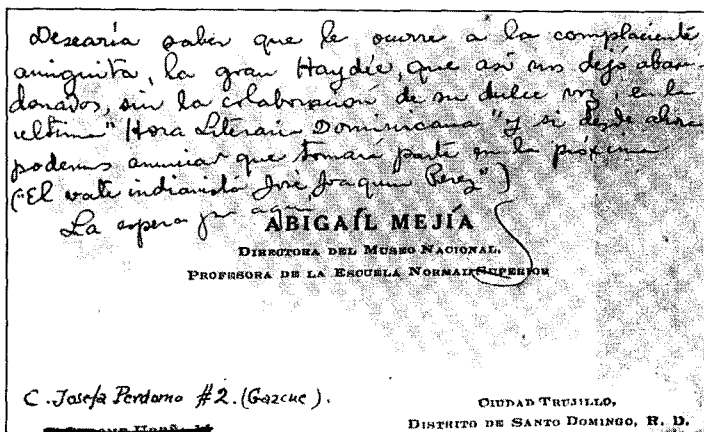 Desearía saber que le ocurre a la complaciente
amiguita, la gran Haydée, que así nos dejó aban-
donados, sin la colaboración de su dulce voz, en la
ultima "Hora Literaria Dominicana" y si desde ahora
podemos anunciar que tomará parte en la próxima
("El vate indianista José Joaquín Perez")
La espera por aquí
ABIGAÍL MEJÍA
DIRECTORA DEL MUSEO NACIONAL.
PROFESORA DE LA ESCUELA NORMAL SUPERIOR
C. Josefa Perdomo #2. (Gazcue).
CIUDAD TRUJILLO,
DISTRITO DE SANTO DOMINGO, R. D.